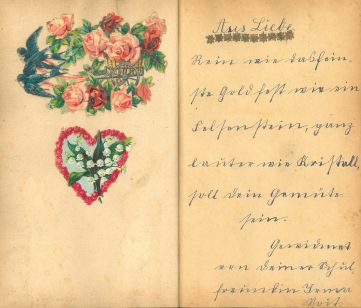 Aus Liebe
Rein wie das fein-
ste Gold fest wie ein
Felsenstein, ganz
lauter wie Kristall,
soll dein Gemüte
sein.
Gewidmet
von deiner Schul
freundin Irma